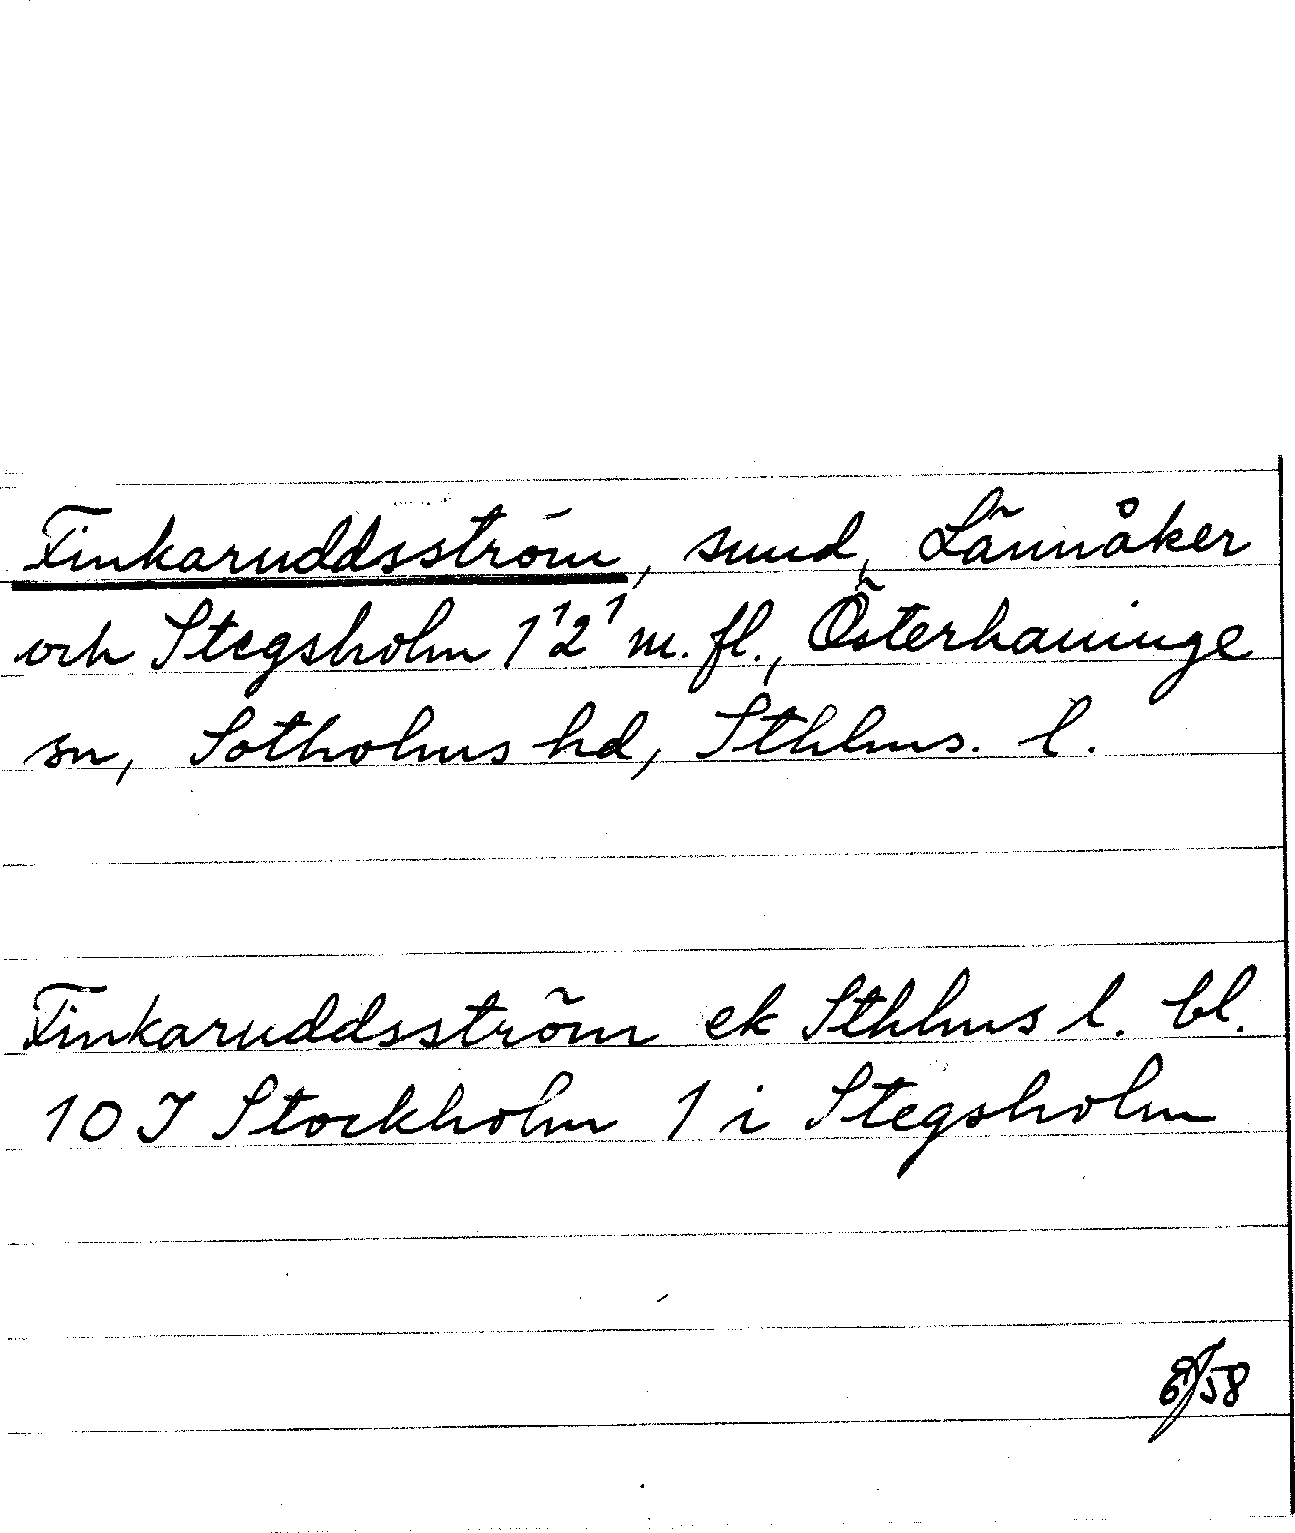 Finkaruddsström, sund, Lännåker
och Stegsholm 1¹2¹ m. fl., Österhaninge
sn, Sotholms hd, Sthlms. l.
Finkaruddsström ek Sthlms l. bl.
10 I Stockholm 1 i Stegsholm